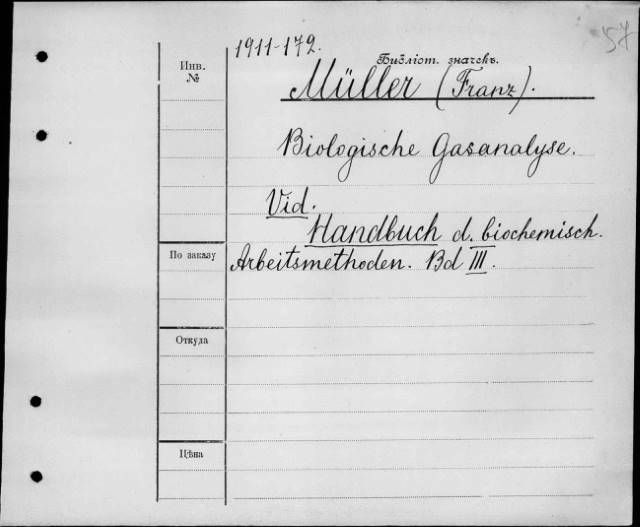 1911-172.
57
Инв.
№
Библіот. значекъ.
Müller (Franz).
Biologische Gasanalyse.
Vid.
Handbuch d. biochemisch.
По заказу
Arbeitsmethoden. Bd III.
Откуда
Цѣна